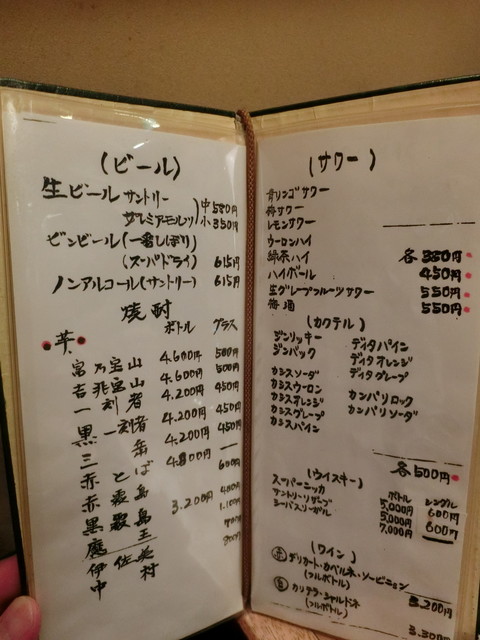 (ビール)
生ビール サントリー
ザ・プレミアモルツ 中580円
小350円
ビンビール(一番しぼり)
(スーパドライ) 615円
ノンアルコール(サントリー) 615円
焼酎
ボトル グラス
芋
富乃宝山 4.600円 500円
吉兆宝山 4.600円 500円
一刻者 4.200円 450円
黒一刻者 4.200円 450円
三岳 4.200円 450円
4.800円
600円
3.200円
(サワー)
青リンゴサワー
梅サワー
レモンサワー
ウーロンハイ
緑茶ハイ 各380円
ハイボール 450円
生グレープフルーツサワー 550円
梅酒 550円
(カクテル)
ジンリッキー ディタパイン
ジンバック ディタオレンジ
ディタグレープ
カシスソーダ
カシスウーロン カンパリロック
カシスオレンジ カンパリソーダ
カシスグレープ
カシスパイン
各500円
(ウイスキー) ボトル シングル
スーパーニッカ 5,000円 600円
サントリーリザーブ 5,000円
シーバスリーガル 7,000円 600円
(ワイン)
赤 デリカート・カベルネ・ソービニョン
(フルボトル) 3.200円
白 カリテラ・シャルドネ
(フルボトル) 3.300円